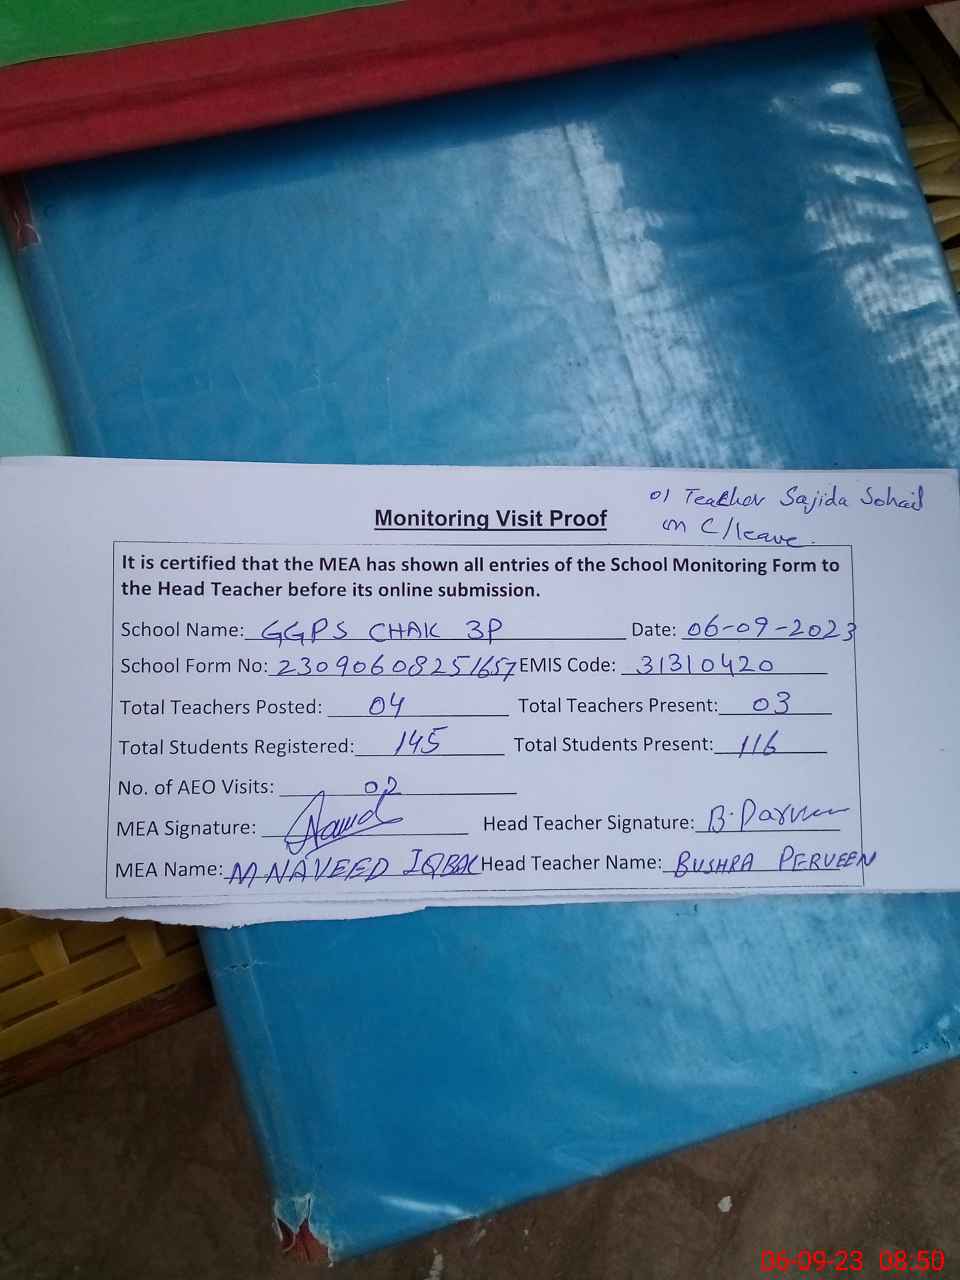 01 Teacher Sajida Sohail
on C/leave.
Monitoring Visit Proof
It is certified that the MEA has shown all entries of the School Monitoring Form to
the Head Teacher before its online submission.
School Name: GGPS CHAK 3P Date: 06-09-2023
School Form No: 23090608251657 EMIS Code: 31310420
Total Teachers Posted: 04 Total Teachers Present: 03
Total Students Registered: 145 Total Students Present: 116
No. of AEO Visits: 02
MEA Signature: Head Teacher Signature: B. Parveen
MEA Name: M NAVEED IQBAL Head Teacher Name: BUSHRA PERVEEN
06-09-23 08:50